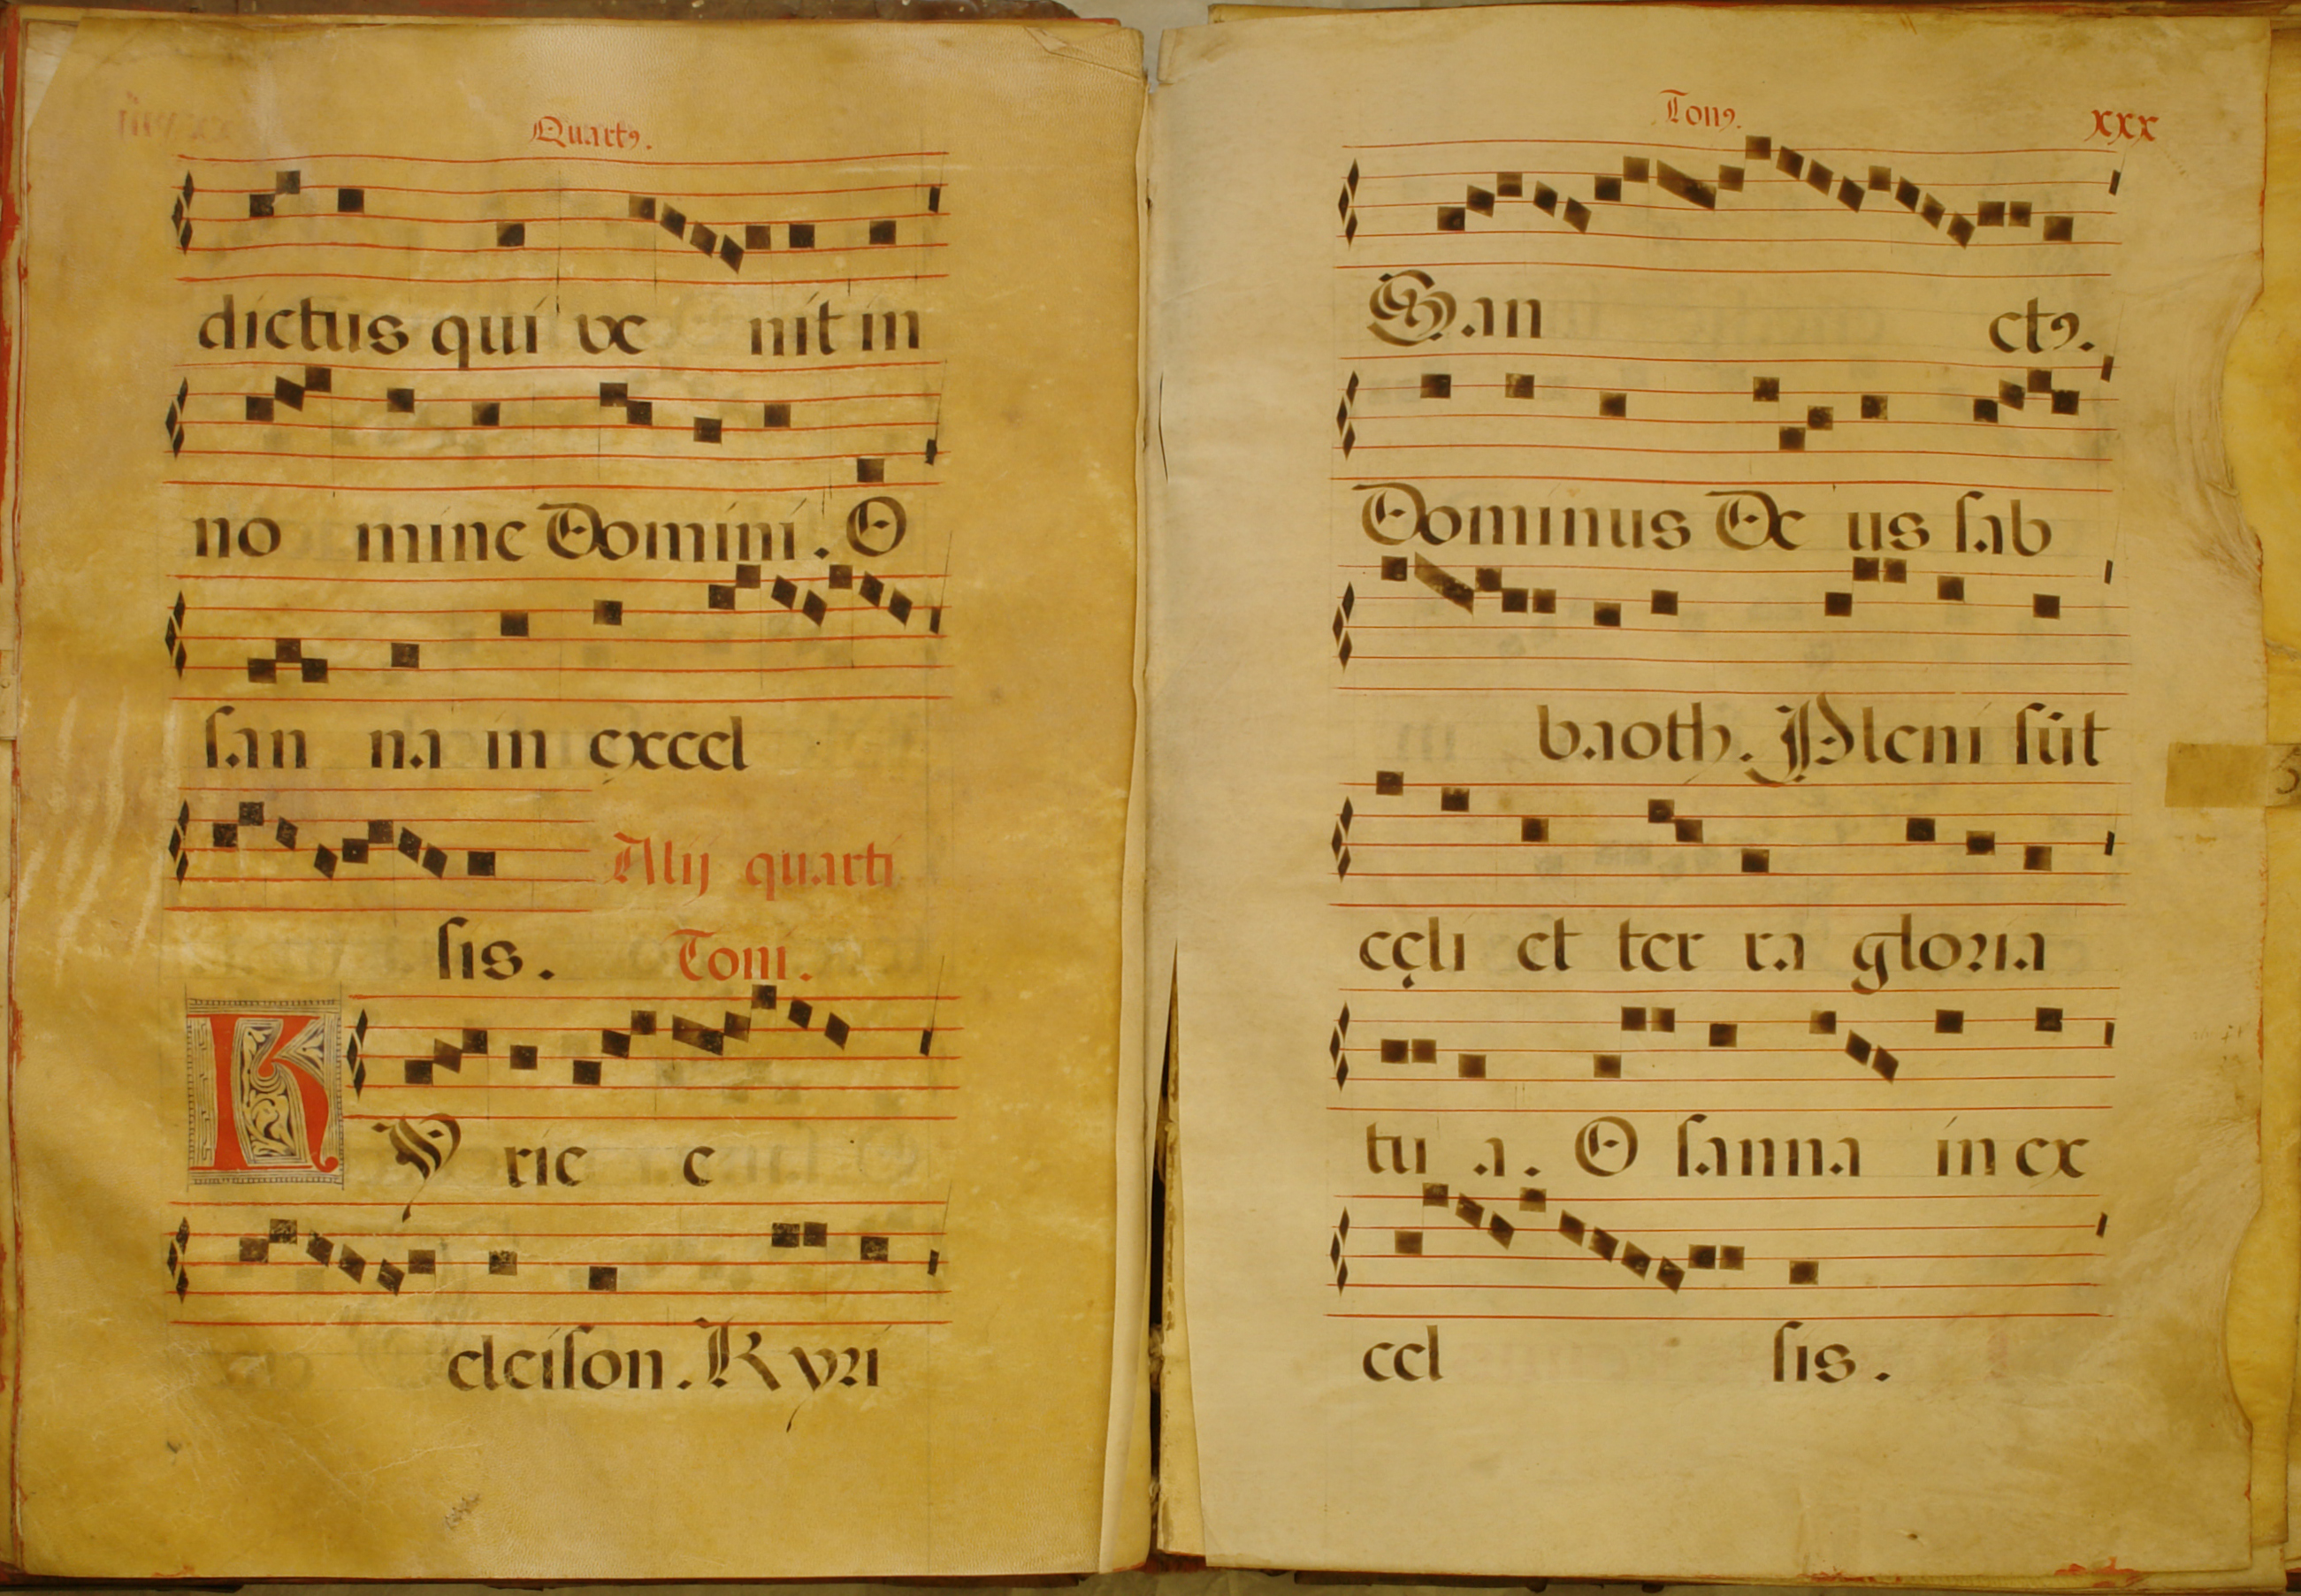 Quartꝯ.
dictus qui ve nit in
no mine Domini. O
ſan na in excel
Alij quarti
ſis. Toni.
K Y rie e
eleiſon. Kyri
Tonꝯ. xxx
San ctꝯ.
Dominus De us ſab
baoth. Pleni ſūt
cęli et ter ra gloria
tu a. O ſanna in ex
cel ſis.